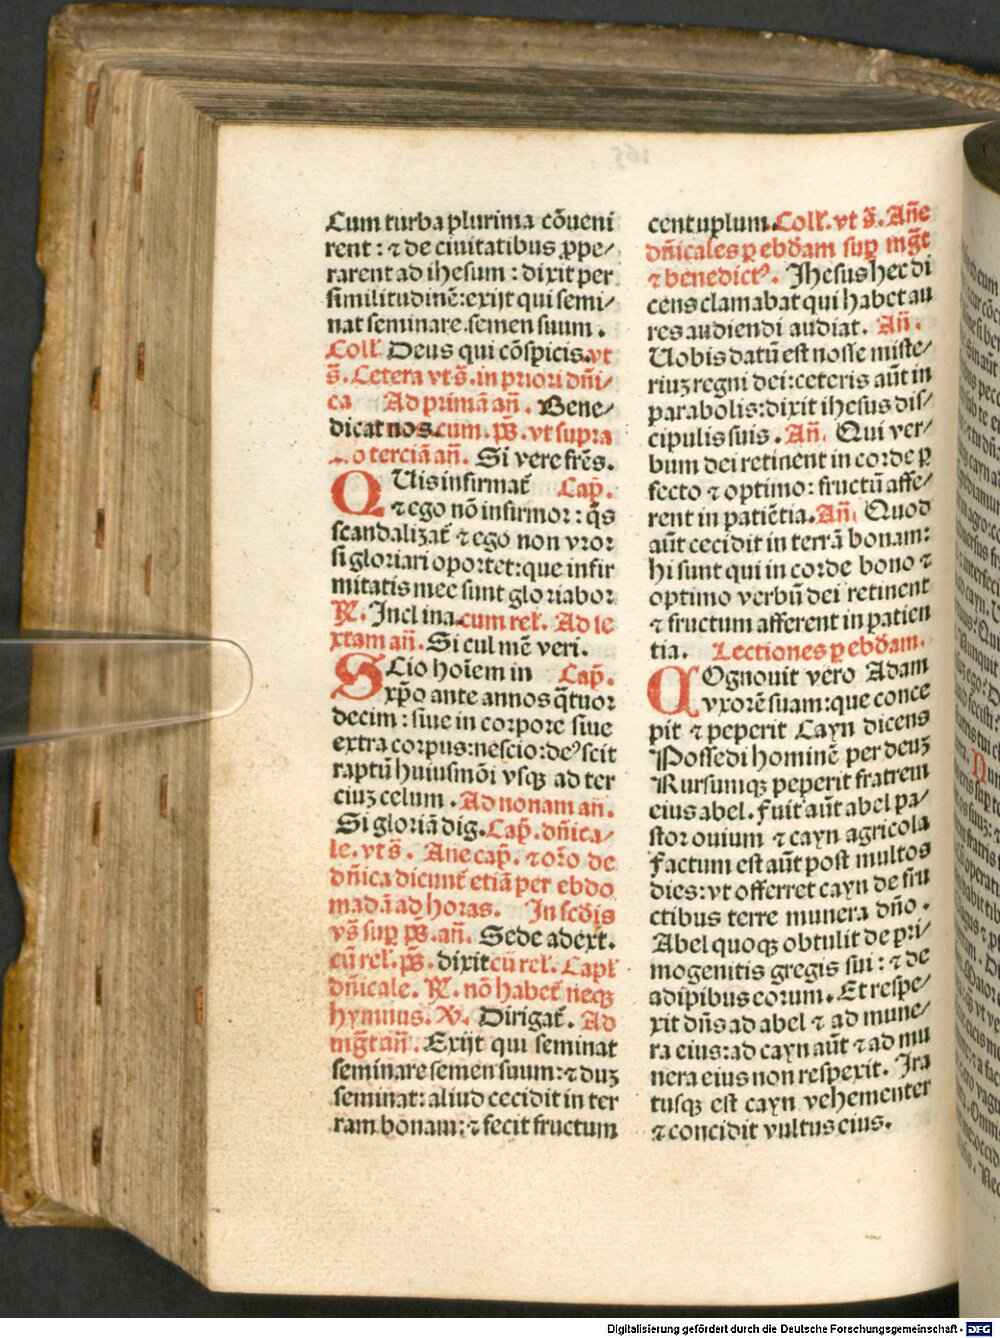 Cum turba plurima cōueni
rent : ⁊ de ciuitatibus ꝓpe/
rarent ad ihesum : dixit per
similitudinē: exijt qui semi/
nat seminare semen suum .
Coll̄. Deus qui cōspicis. vt
s̄. Cetera vt s̄. in priori dn̄i/
ca Ad primā an̄. Bene/
dicat nos. cum. ps̄. vt supra
o terciā an̄. Si vere fr̄es.
QUis infirmat̄ Cap̄.
⁊ ego nō infirmor : q̄s
scandalizat̄ ⁊ ego non vror
si gloriari oportet: que infir
mitatis mee sunt gloriabor
R̄. Inclina. cum rel̄. Ad se
xtam an̄. Si cul mē veri.
SCio hoīem in Cap̄.
xp̄o ante annos q̄tuor
decim : siue in corpore siue
extra corpus: nescio: deꝰ scit
raptū huiusmōi vsqꝫ ad ter
ciuꝫ celum . Ad nonam an̄.
Si gloriā dig. Cap̄. dn̄ica/
le. vt s̄. Ane cap̄. ⁊ or̄o de
dn̄ica dicunt̄ etiā per ebdo
madā ad horas. In scd̄is
vs̄ sup̄ ps̄. an̄. Sede a dext.
cū rel̄. ps̄. dixit cū rel̄. Capl̄
dn̄icale. R̄. nō habet̄ neqꝫ
hymnus. V̄. Dirigat̄. Ad
mḡt an̄. Exijt qui seminat
seminare semen suum: ⁊ duꝫ
seminat: aliud cecidit in ter
ram bonam: ⁊ fecit fructum
centuplum. Coll̄. vt s̄. An̄e
dn̄icales ꝑ ebd̄am sup̄ mḡt
⁊ benedictꝰ. Jhesus hec di
cens clamabat qui habet au
res audiendi audiat. An̄.
Uobis datū est nosse miste/
riuꝫ regni dei: ceteris aūt in
parabolis: dixit ihesus dis/
cipulis suis . An̄. Qui ver/
bum dei retinent in corde ꝑ
fecto ⁊ optimo : fructū affe/
rent in patiētia. An̄. Quod
aūt cecidit in terrā bonam:
hi sunt qui in corde bono ⁊
optimo verbū dei retinent
⁊ fructum afferent in patien
tia. Lectiones ꝑ ebd̄am.
COgnouit vero Adam
vxorē suam: que conce
pit ⁊ peperit Cayn dicens
Possedi hominē per deuꝫ
Rursumqꝫ peperit fratrem
eius abel. Fuit aūt abel pa/
stor ouium ⁊ cayn agricola
Factum est aūt post multos
dies: vt offerret cayn de fru
ctibus terre munera dn̄o .
Abel quoqꝫ obtulit de pri/
mogenitis gregis sui : ⁊ de
adipibus eorum. Et respe/
xit dn̄s ad abel ⁊ ad mune/
ra eius: ad cayn aūt ⁊ ad mu
nera eius non respexit. Ira
tusqꝫ est cayn vehementer
⁊ concidit vultus eius.
Digitalisierung gefördert durch die Deutsche Forschungsgemeinschaft - DFG